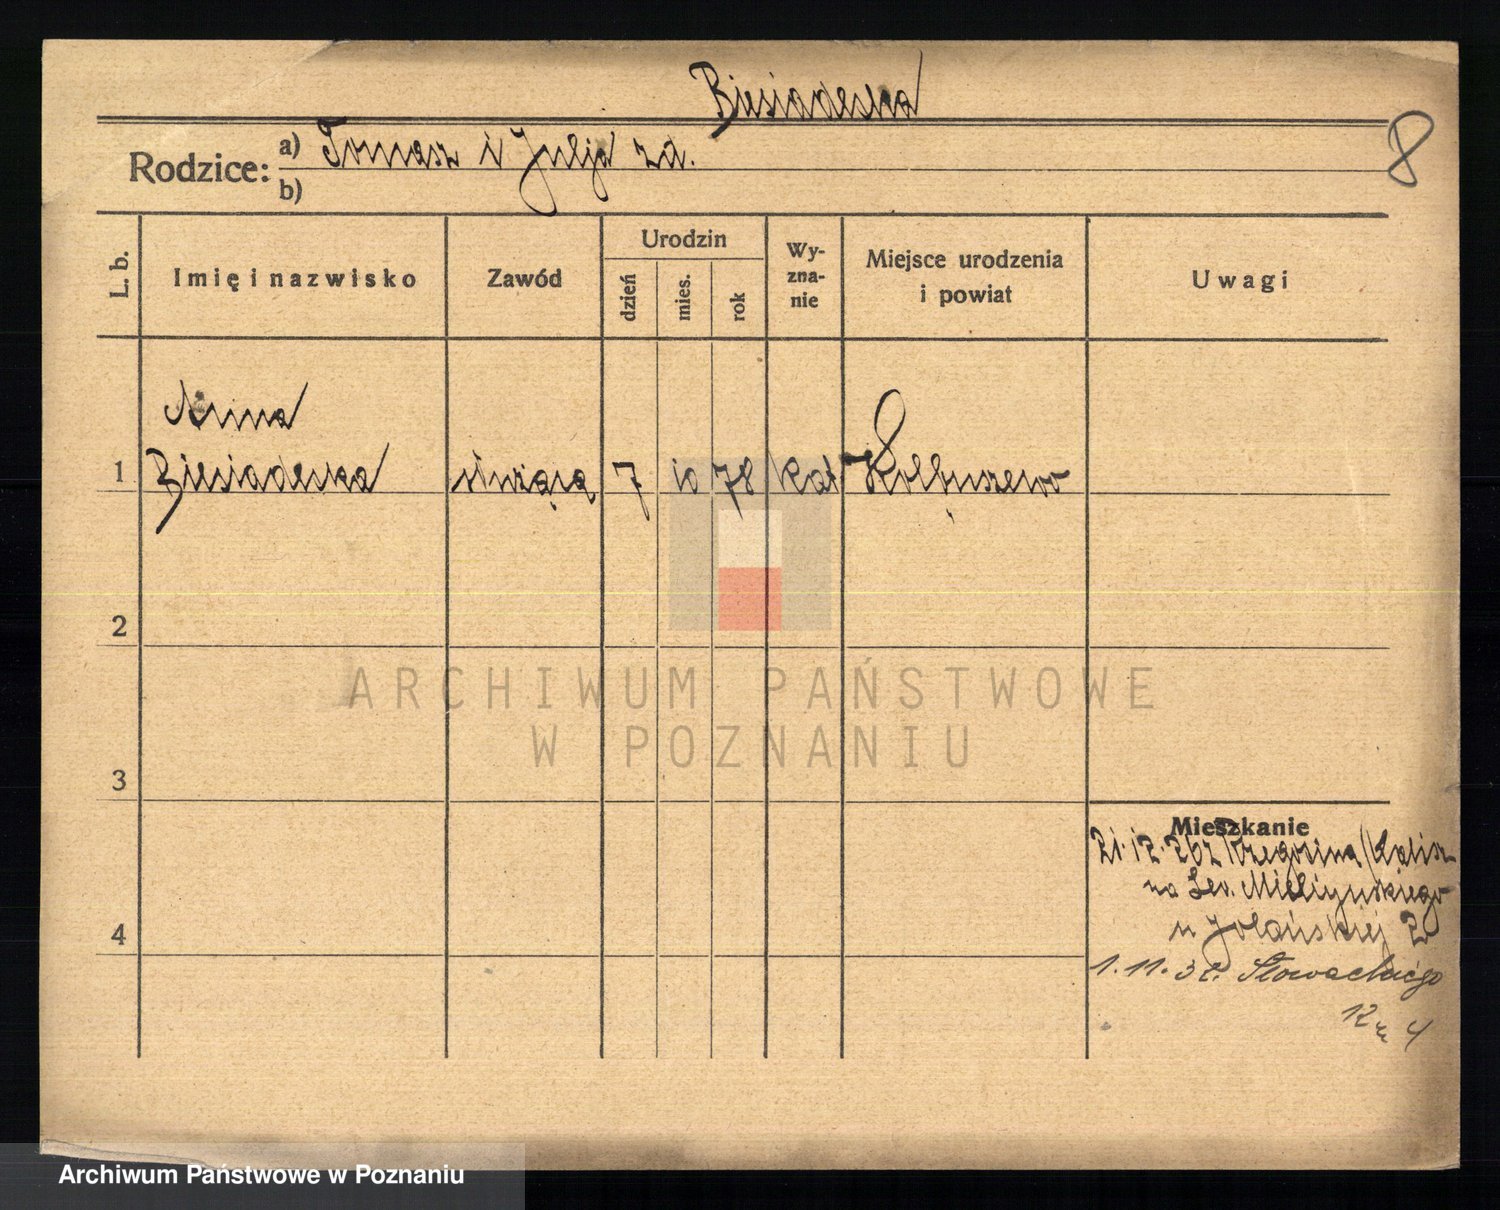 Biesiadecka
8
Rodzice: a) Tomasz i Julja zd.
b)
L. b. Imię i nazwisko Zawód Urodzin dzień mies. rok Wyznanie Miejsce urodzenia i powiat Uwagi
Anna
1 Biesiadecka służąca 7 10 78 kat Kolbuszewo
2
ARCHIWUM PAŃSTWOWE
W POZNANIU
3
Mieszkanie
21.12.26 z /Kalisz
na Lew. Mielżyńskiego
4
1.11.32. Słowackiego
12 m 4
Archiwum Państwowe w Poznaniu